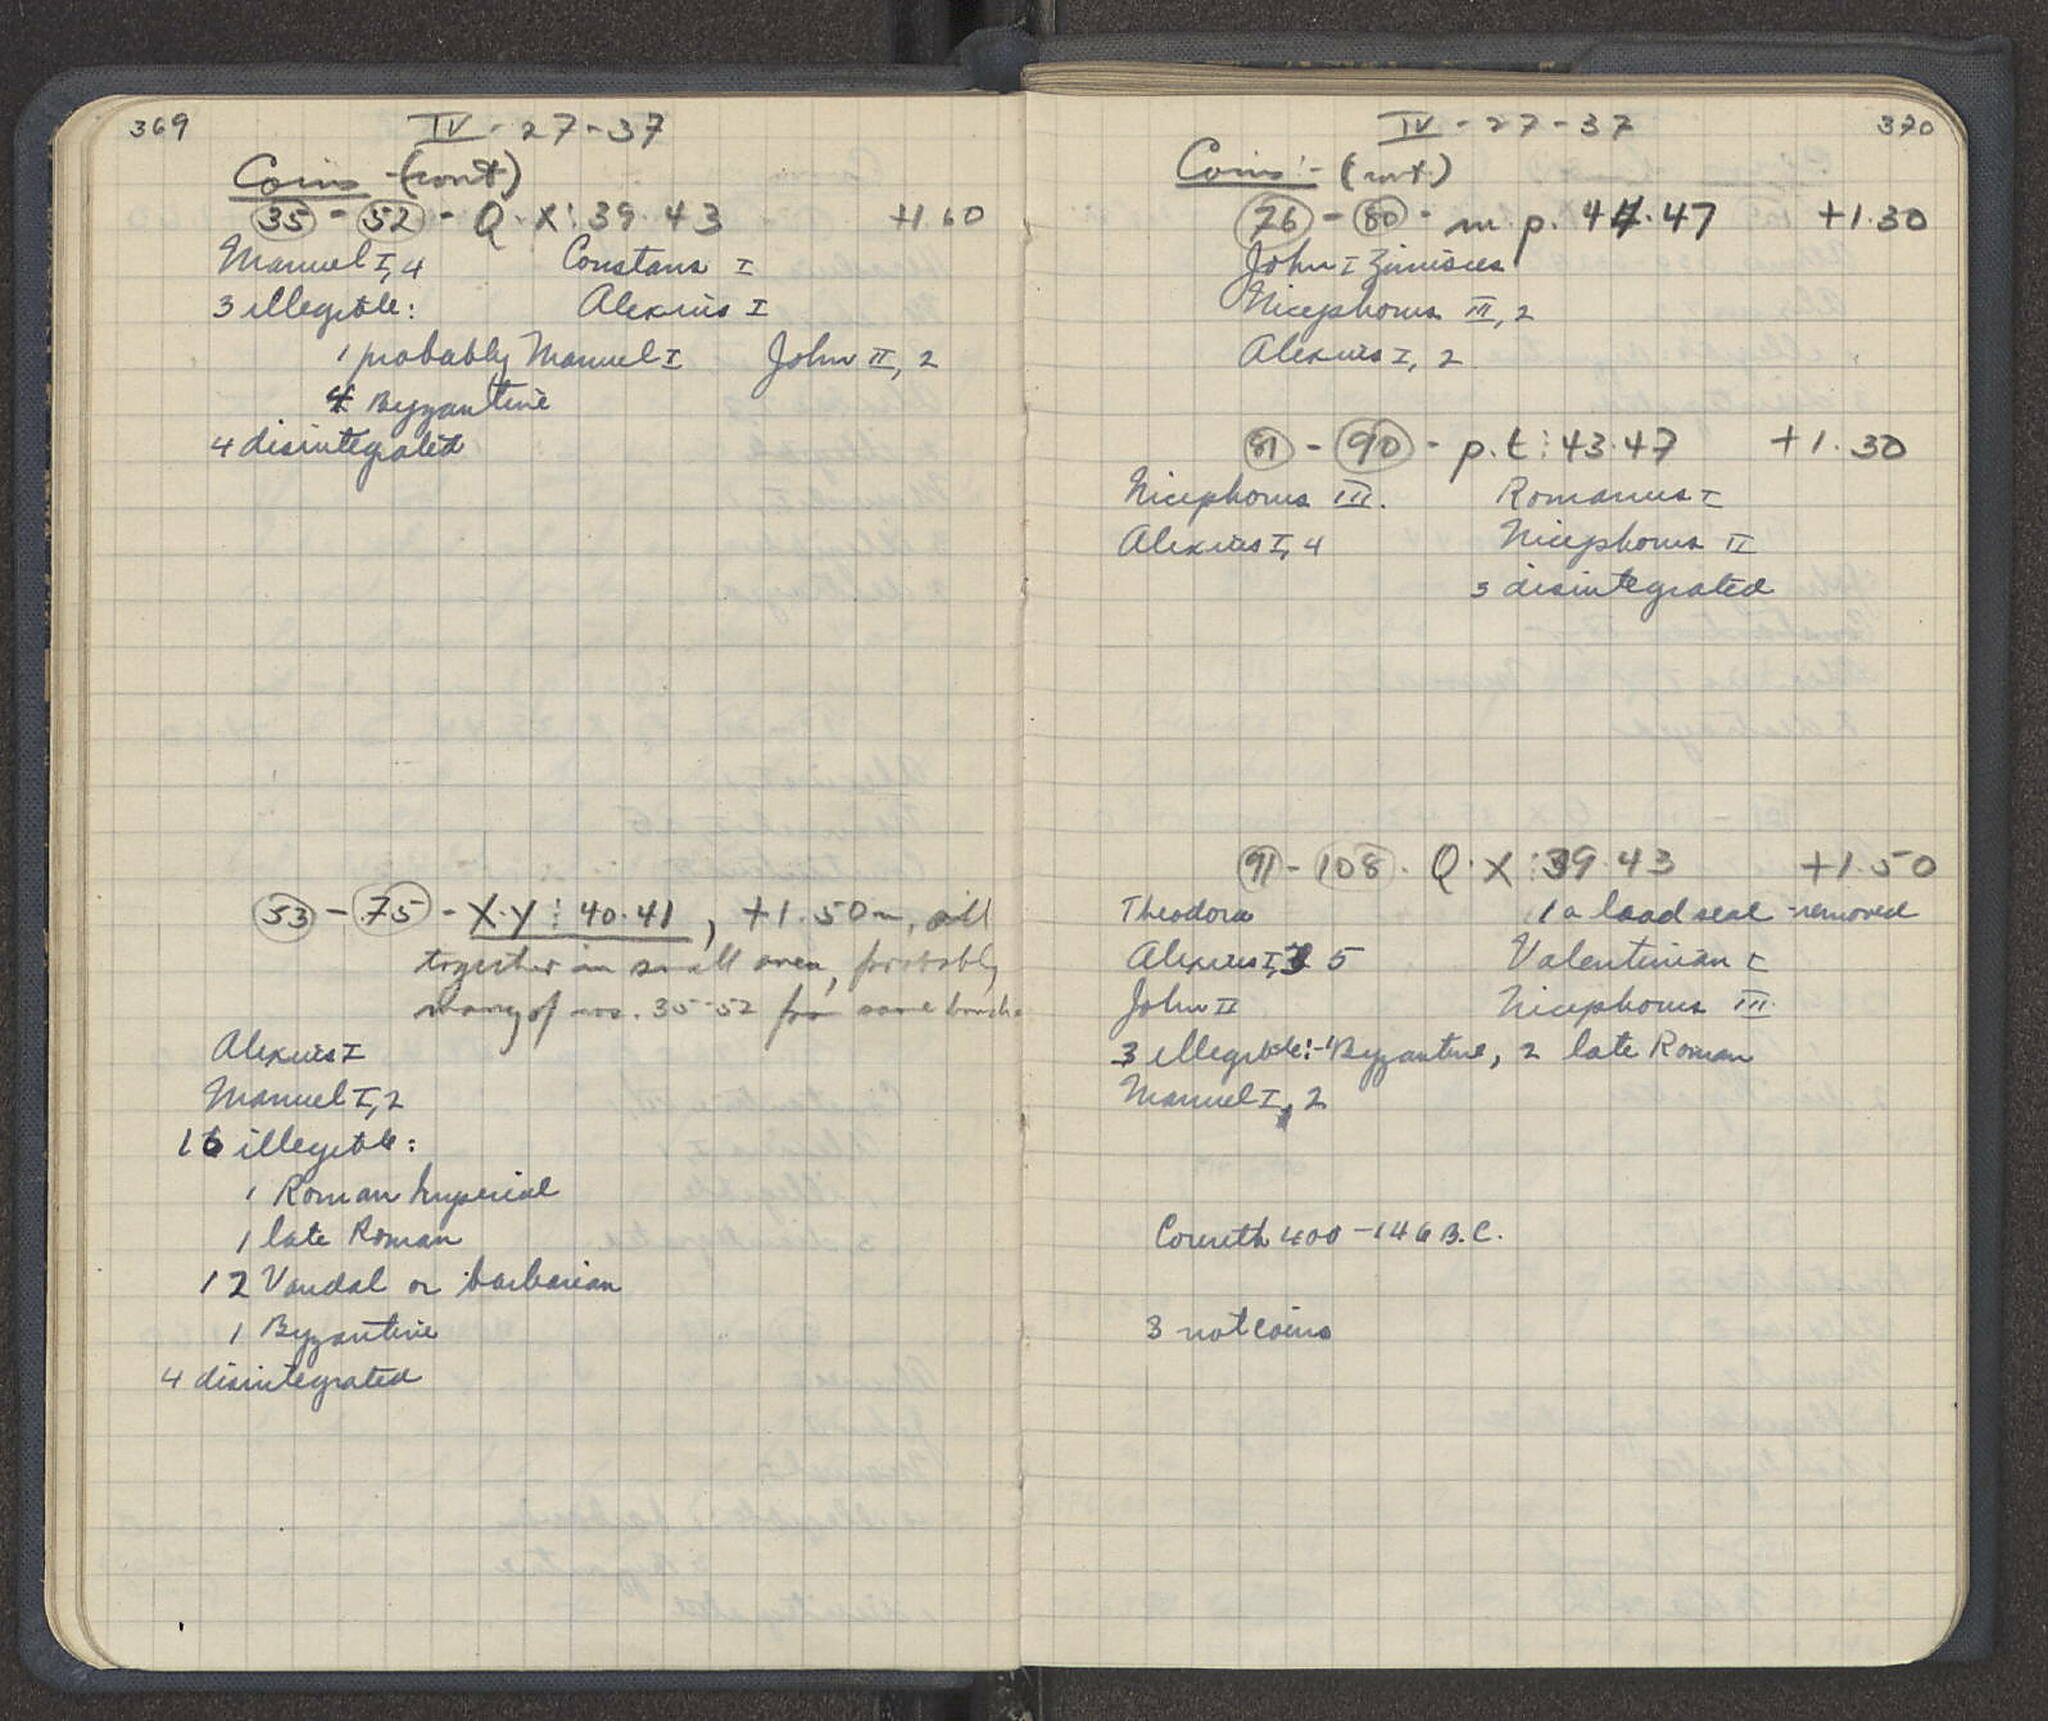 369
IV-27-37
Coins (cont)
35 - 52 - Q·X: 39·43 +1.60
Manuel I, 4 Constans I
3 illegible: Alexius I
1 probably Manuel I John II, 2
4 Byzantine
4 disintegrated
53 - 75 - X·Y: 40·41, +1.50m, all
together in small area, probably
many of nos. 35-52 from same bunch.
Alexius I
Manuel I, 2
16 illegible:
1 Roman Imperial
1 late Roman
12 Vandal or barbarian
1 Byzantine
4 disintegrated
IV-27-37 370
Coins:- (cont.)
76 - 80 - m.p. 44·47 +1.30
John I Zimisces
Nicephorus III, 2
Alexius I, 2
81 - 90 - p.t: 43·47 +1.30
Nicephorus III. Romanus I
Alexius I, 4 Nicephorus II
3 disintegrated
91 - 108 · Q·X: 39·43 +1.50
Theodora 1 a lead seal - removed
Alexius I, 5 Valentinian I
John II Nicephorus III
3 illegible:- 1 Byzantine, 2 late Roman
Manuel I, 2
Corinth 400-146 B.C.
3 not coins